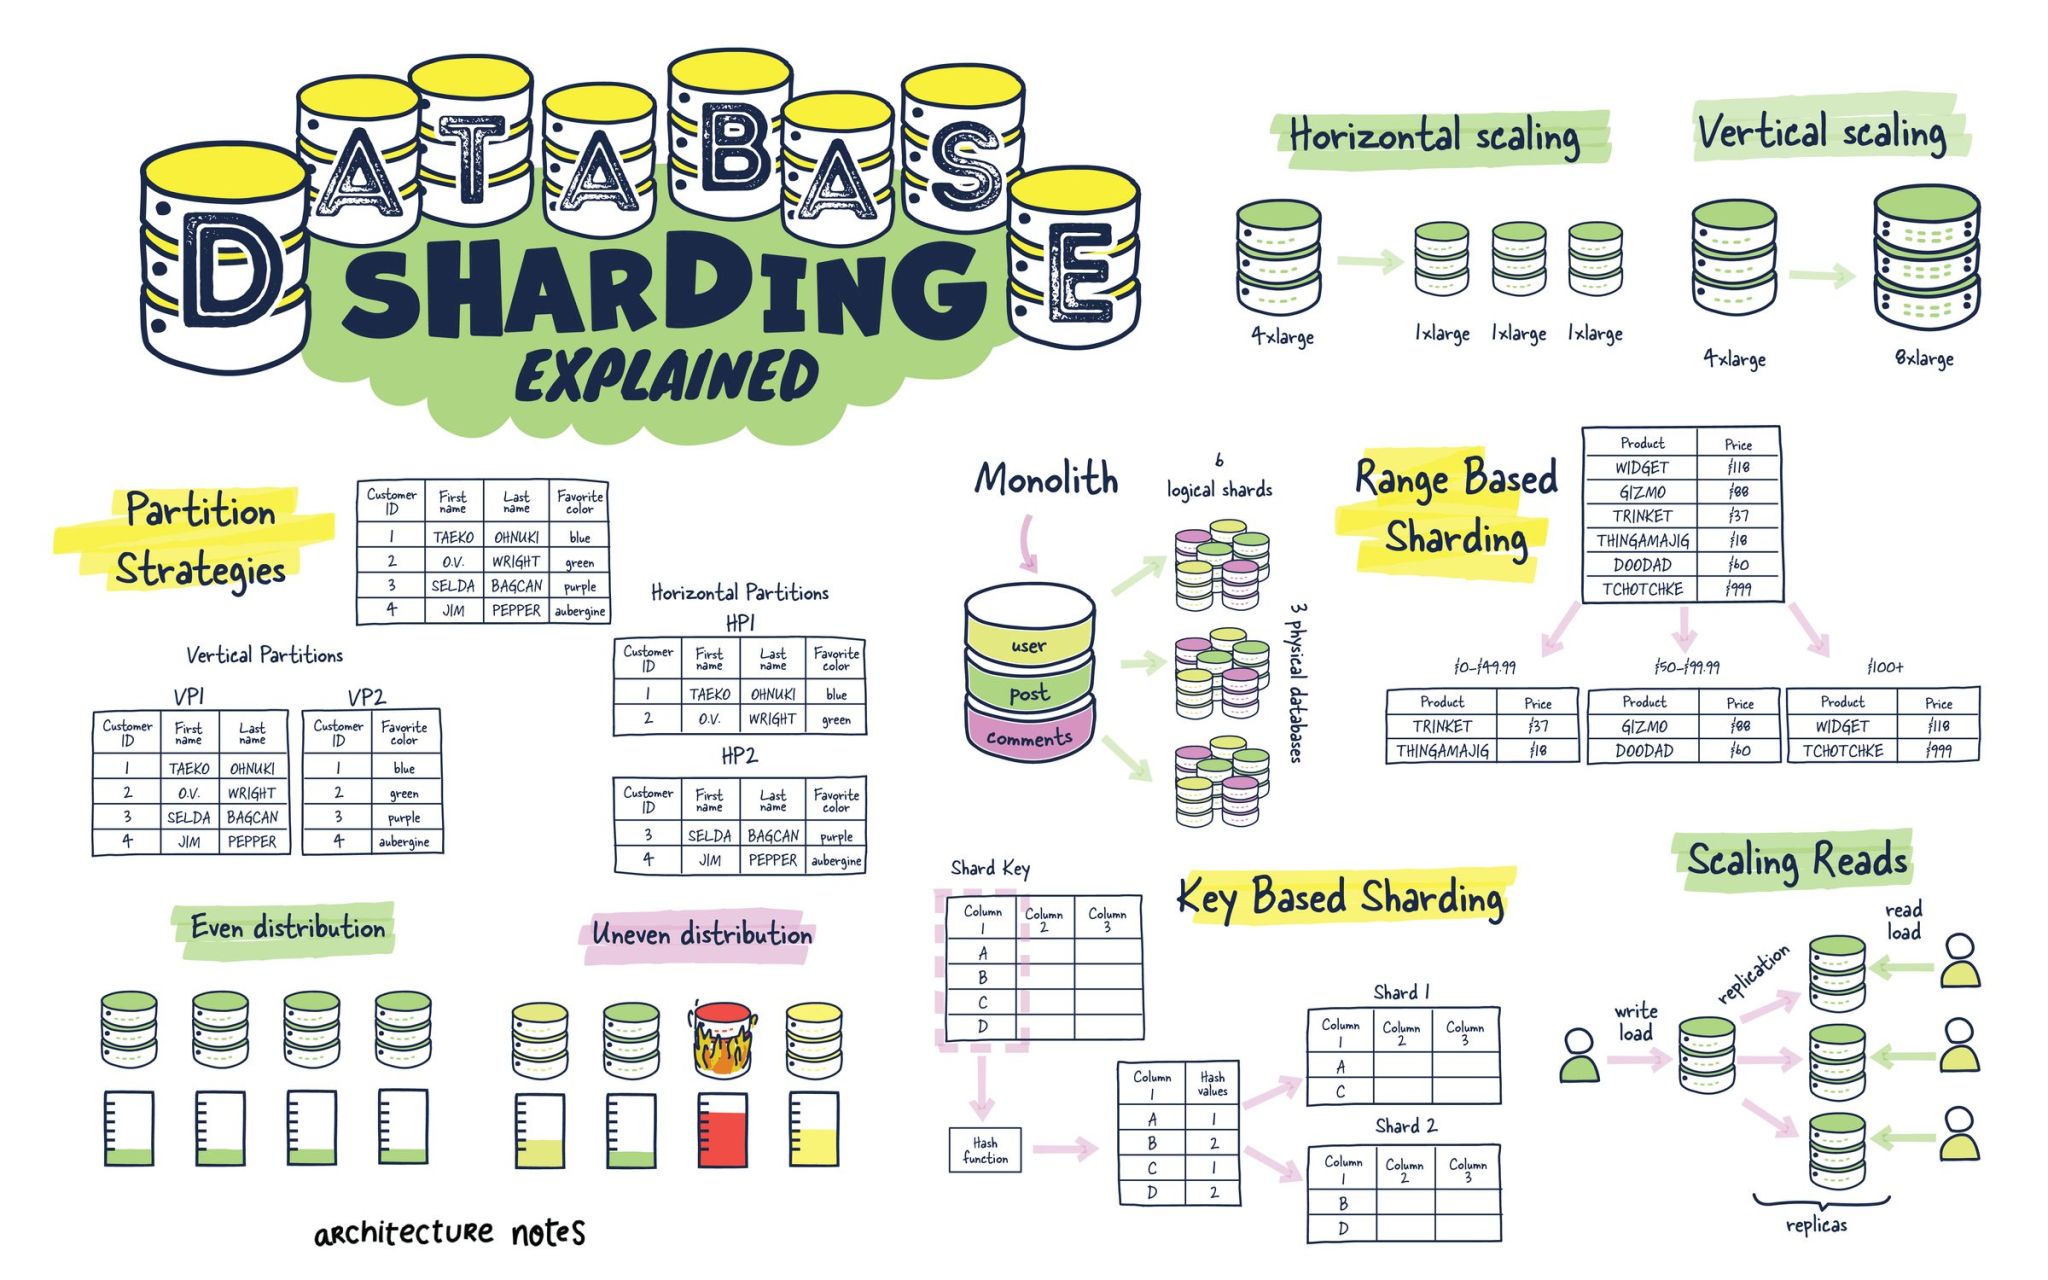 DATABASE
SHARDING
EXPLAINED
Horizontal scaling
4xlarge
1xlarge 1xlarge 1xlarge
Vertical scaling
4xlarge
8xlarge
Partition
Strategies
Customer ID First name Last name Favorite color
1 TAEKO OHNUKI blue
2 O.V. WRIGHT green
3 SELDA BAGCAN purple
4 JIM PEPPER aubergine
Vertical Partitions
VP1
Customer ID First name Last name
1 TAEKO OHNUKI
2 O.V. WRIGHT
3 SELDA BAGCAN
4 JIM PEPPER
VP2
Customer ID Favorite color
1 blue
2 green
3 purple
4 aubergine
Horizontal Partitions
HP1
Customer ID First name Last name Favorite color
1 TAEKO OHNUKI blue
2 O.V. WRIGHT green
HP2
Customer ID First name Last name Favorite color
3 SELDA BAGCAN purple
4 JIM PEPPER aubergine
Monolith
user
post
comments
6
logical shards
3 physical databases
Range Based
Sharding
Product Price
WIDGET $118
GIZMO $88
TRINKET $37
THINGAMAJIG $18
DOODAD $60
TCHOTCHKE $999
$0-$49.99
Product Price
TRINKET $37
THINGAMAJIG $18
$50-$99.99
Product Price
GIZMO $88
DOODAD $60
$100+
Product Price
WIDGET $118
TCHOTCHKE $999
Even distribution
Uneven distribution
Shard Key
Column 1 Column 2 Column 3
A
B
C
D
Hash
function
Key Based Sharding
Column 1 Hash values
A 1
B 2
C 1
D 2
Shard 1
Column 1 Column 2 Column 3
A
C
Shard 2
Column 1 Column 2 Column 3
B
D
Scaling Reads
write
load
replication
read
load
replicas
architecture notes